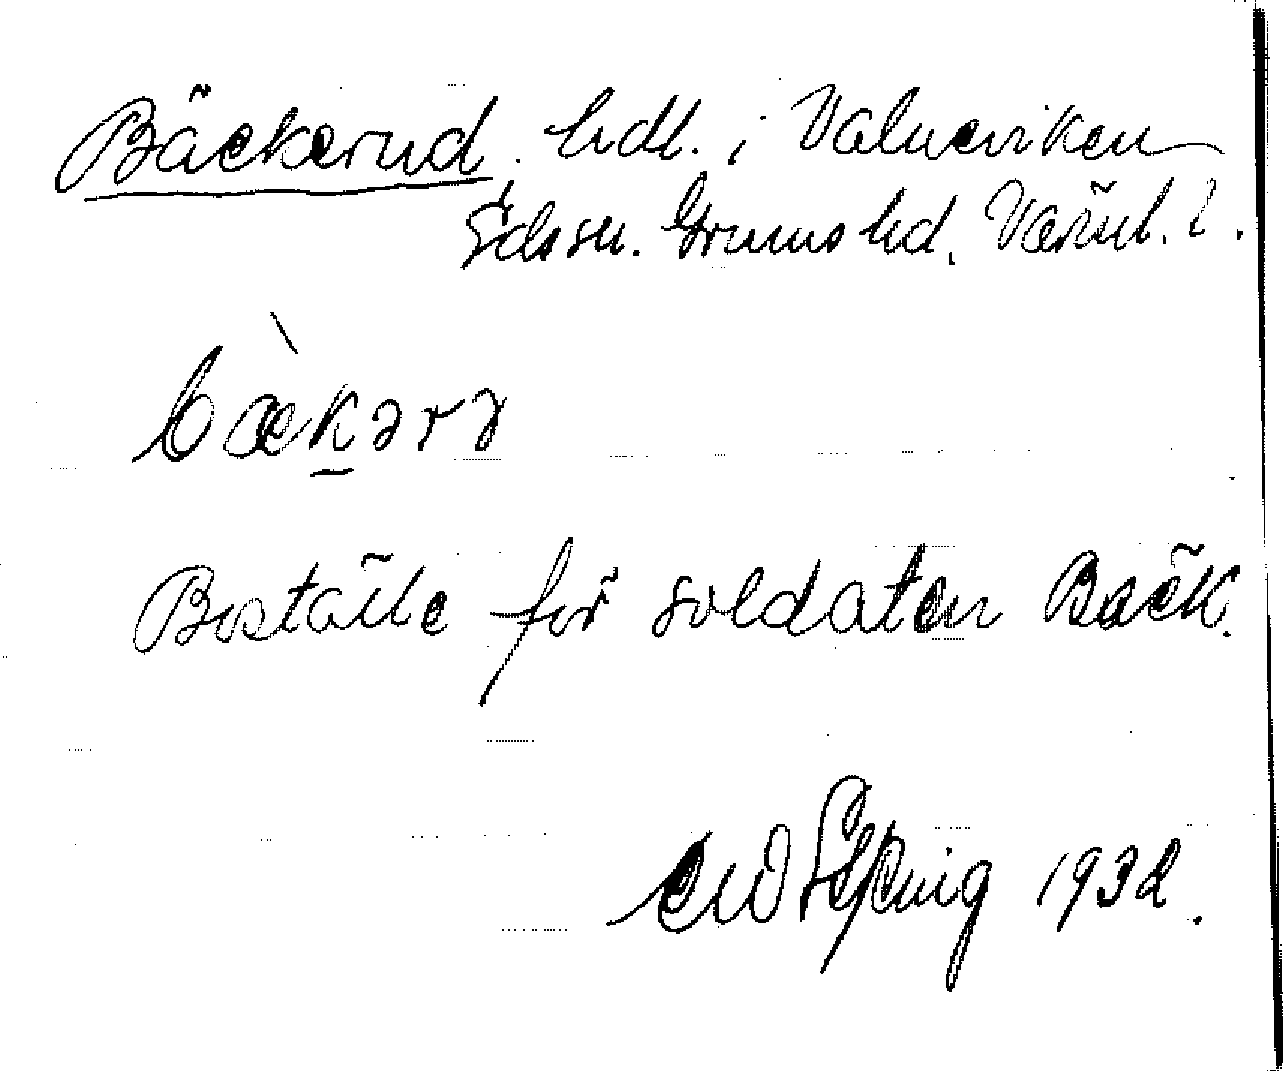 Bäckerud, hdl. i Valneviken
Eds sn. Grums hd, Värml. l.
bæ̀kərə
Boställe för soldaten Bäck.
1932.